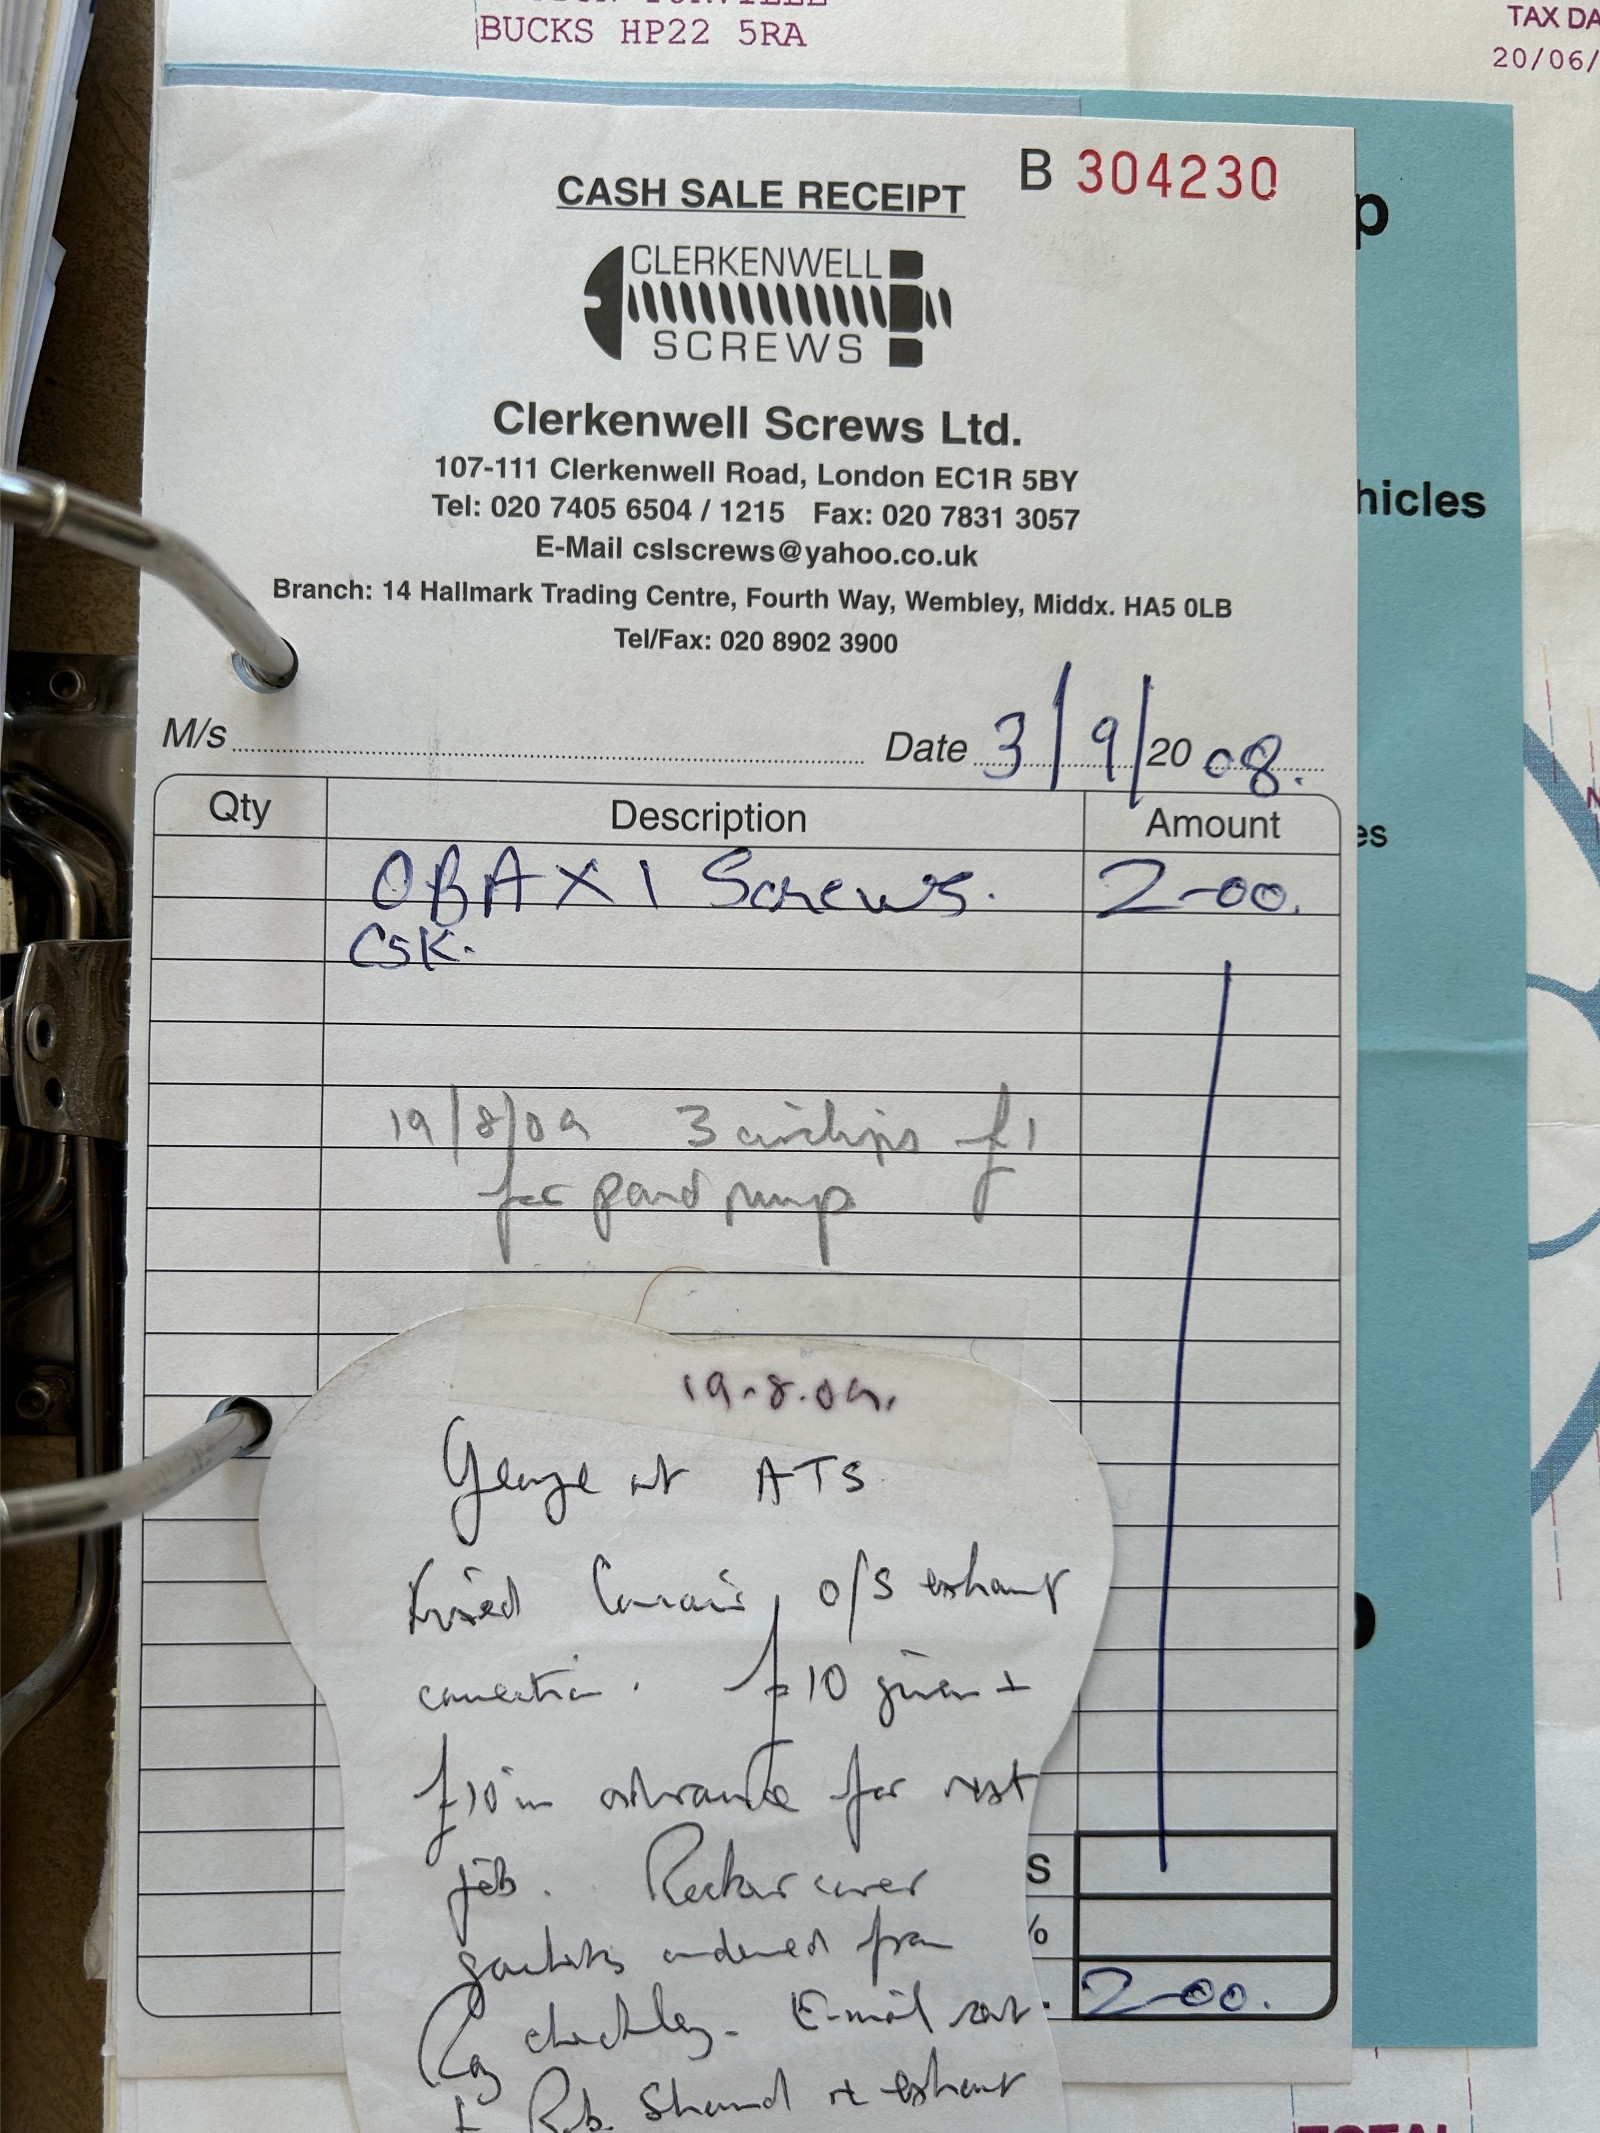 BUCKS HP22 5RA
TAX DA
20/06/
B 304230
CASH SALE RECEIPT
CLERKENWELL
SCREWS
Clerkenwell Screws Ltd.
107-111 Clerkenwell Road, London EC1R 5BY
Tel: 020 7405 6504 / 1215 Fax: 020 7831 3057
E-Mail cslscrews@yahoo.co.uk
Branch: 14 Hallmark Trading Centre, Fourth Way, Wembley, Middx. HA5 0LB
Tel/Fax: 020 8902 3900
M/s Date 3/9/2008.
Qty Description Amount
OBA X 1 Screws. 2-00.
CSK.
19/8/09 3 circlips £1
for pond pump
19.8.09.
George at ATS
fixed Corvair, o/s exhaust
connection. £10 given +
£10 in advance for next
job. Rocker cover
gaskets ordered from
Ray
E-mail sent
Rob. re exhaust
S
%
2-00.
p
hicles
es
TOTAL